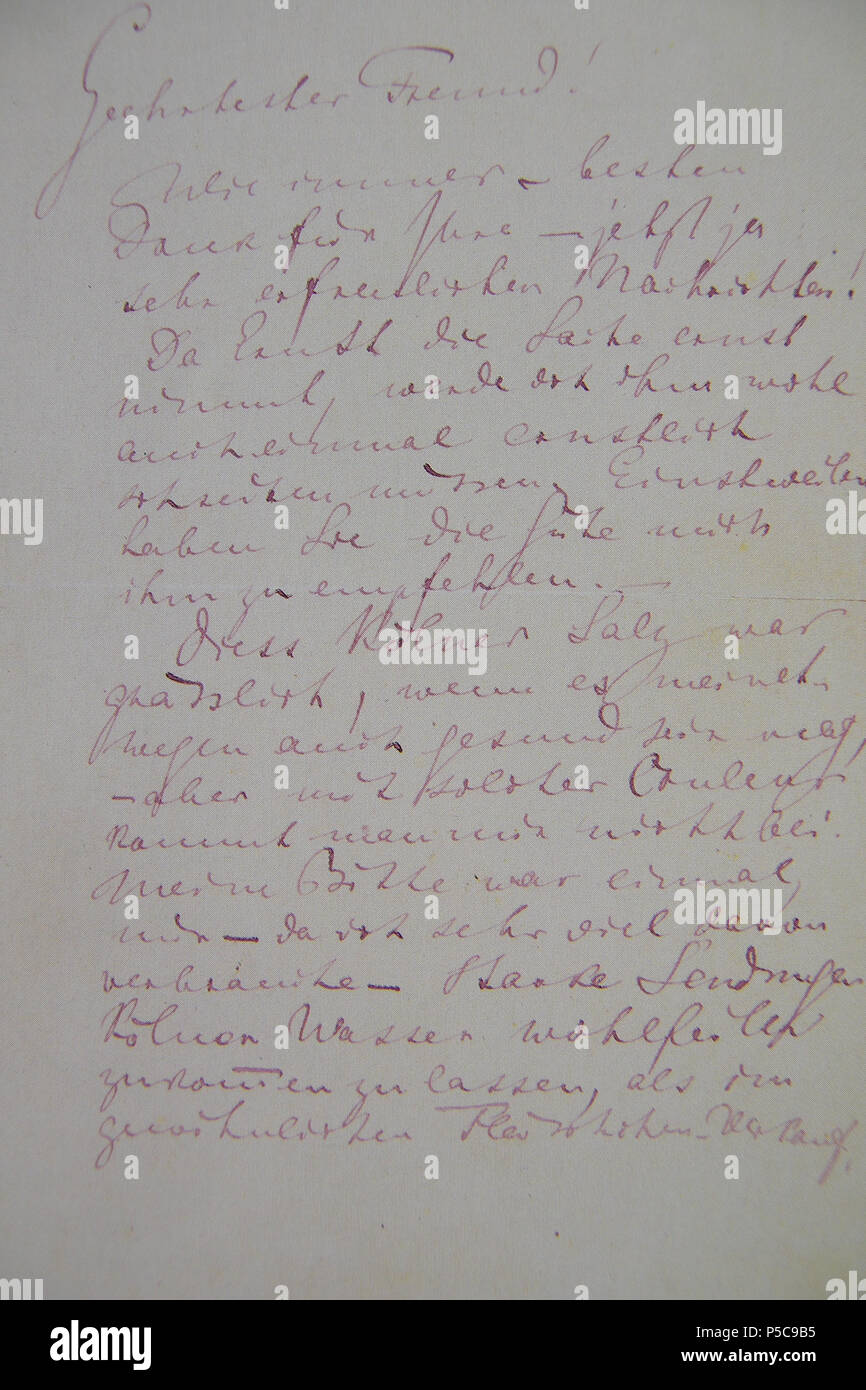 Geehrtester Freund!
Wie immer – besten
Dank für Ihre – jetzt ja
sehr erfreulichen Nachrichten!
Da Ernst die Sache ernst
nimmt, werde ich ihm wohl
auch einmal ernstlich
schreiben müssen. Einstweilen
haben Sie die Güte mich
ihm zu empfehlen. –
Diess Kölner Salz war
grässlich, wenn es meinet-
wegen auch gesund sein mag,
– aber mit solcher Couleur
kommt man mir nicht bei.
Meine Bitte war einmal,
mir – da ich sehr viel davon
verbrauche – starke Sendungen
Kölner Wasser wohlfeiler
zukommen zu lassen, als im
gewöhnlichen Fläschchen-Verkauf.
alamy
a
alamy stock photo
P5C9B5
www.alamy.com